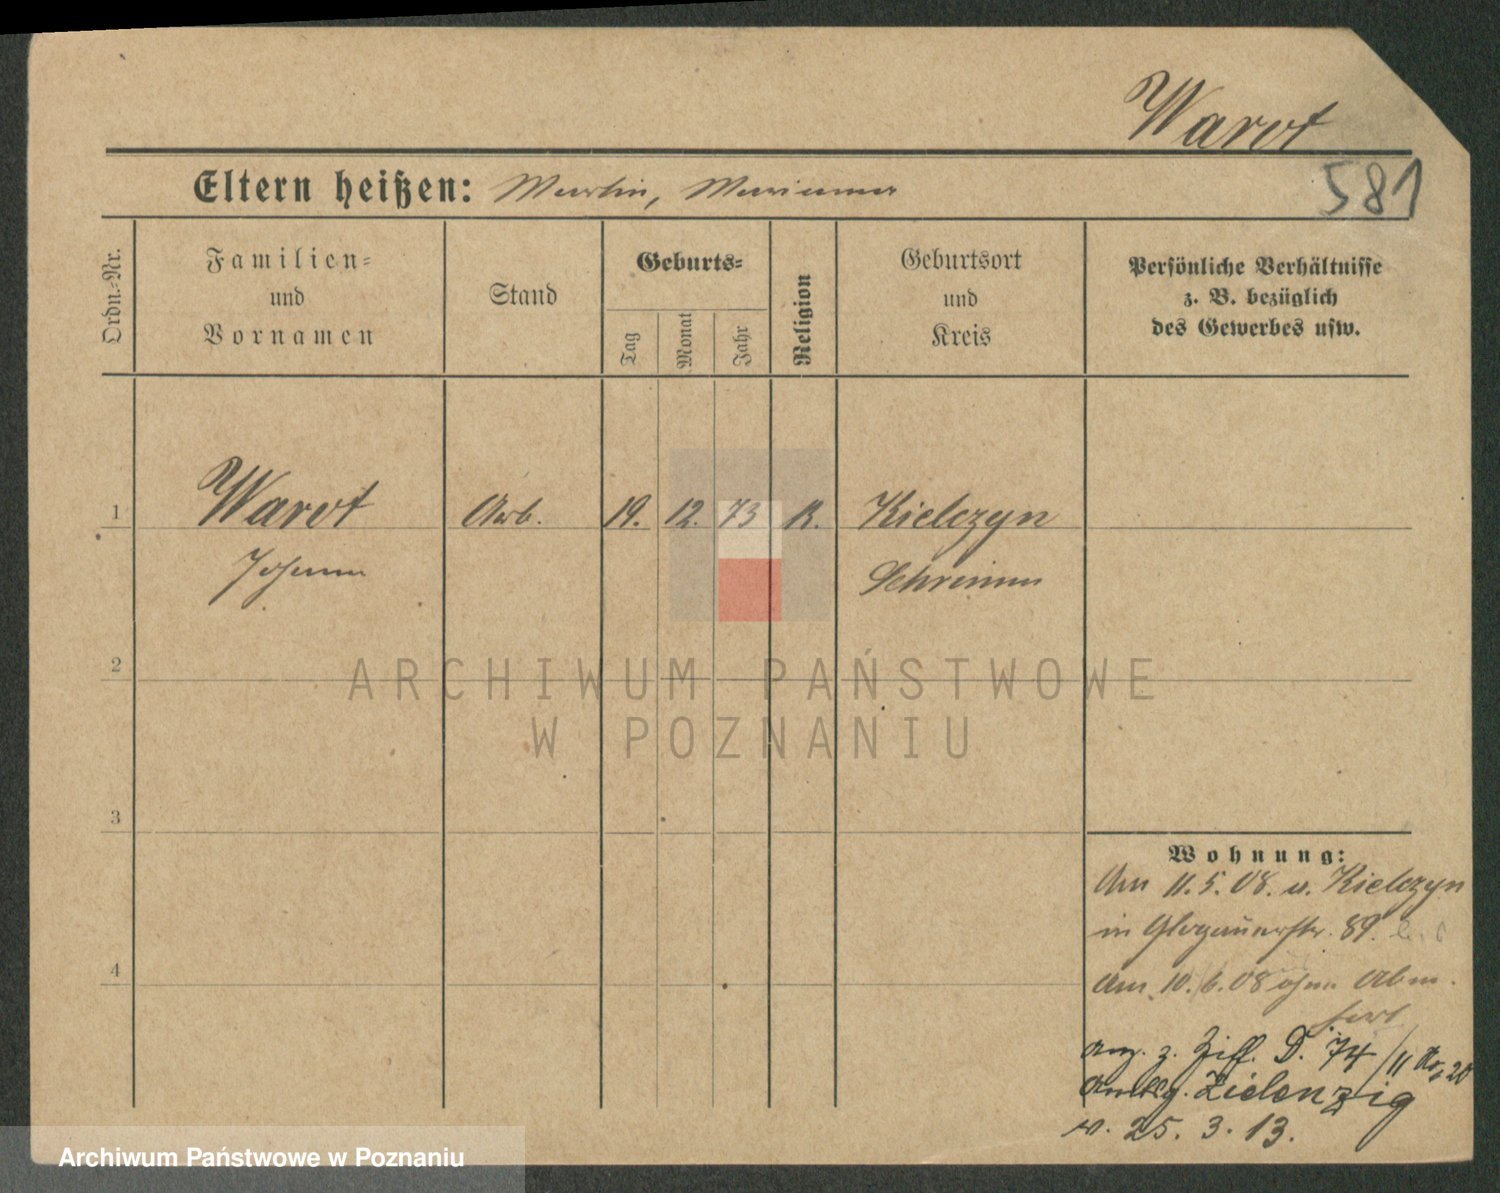 Warot
581
Eltern heißen: Martin, Marianna
Ordn.-Nr.
Familien-
und
Vornamen
Stand
Geburts-
Tag
Monat
Jahr
Religion
Geburtsort
und
Kreis
Persönliche Verhältnisse
z. B. bezüglich
des Gewerbes usw.
1 Warot Arb. 19. 12. 73 K. Kielczyn
Johann Schrimm
2
ARCHIWUM PAŃSTWOWE
W POZNANIU
3
Wohnung:
Am 11. 5. 08. v. Kielczyn
in Glogauerstr. 89.
4
Am 10. 6. 08 ohne Abm.
fort
z. Ziff. D. 74/11
Zielenzig
v. 25. 3. 13.
Archiwum Państwowe w Poznaniu